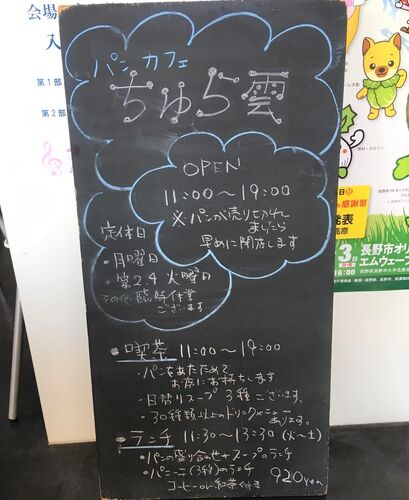 会場
入
第1部
第2部
パンカフェ
ちゅら雲
OPEN
11:00～19:00
※パンが売り切れ
ましたら
早めに閉店します
定休日
・月曜日
・第2.4火曜日
その他臨時休業
ございます
・喫茶 11:00～19:00
・パンをあたためて
お席にお持ちします
・日替りスープ3種ございます。
・30種類以上のドリンクメニュー
あります。
・ランチ 11:30～13:30(火～土)
・パンの盛り合わせ+スープのランチ
・パニーニ(3種)のランチ
コーヒーor紅茶付き 920yen
感謝祭
発表
高原
3日
16:00
長野市オリ
エムウェーブ